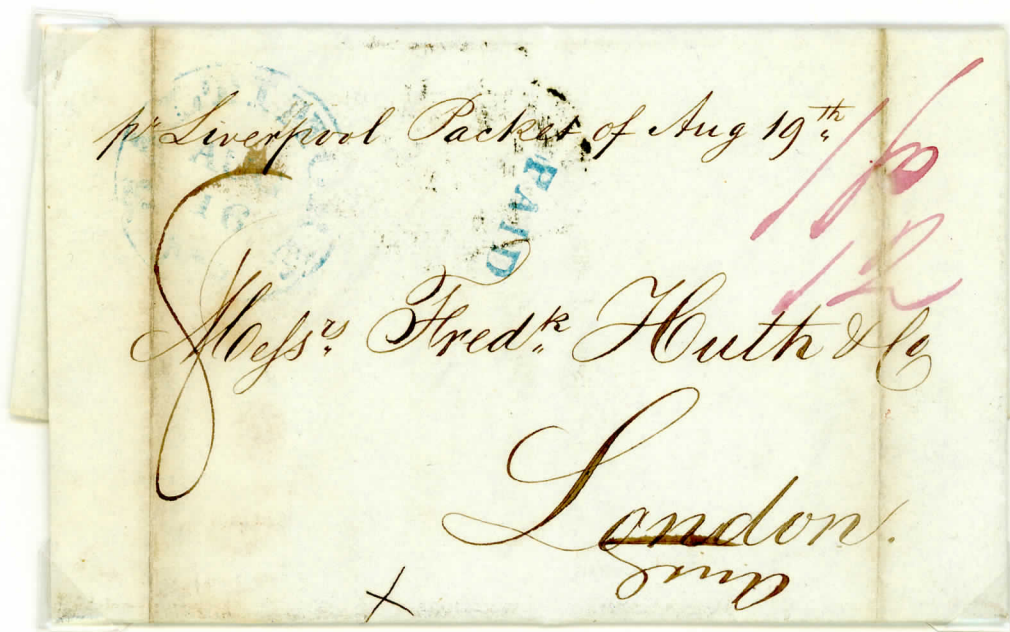 pr Liverpool Packet of Aug 19th
PAID
12
Messrs Fredk Huth & Co
London.